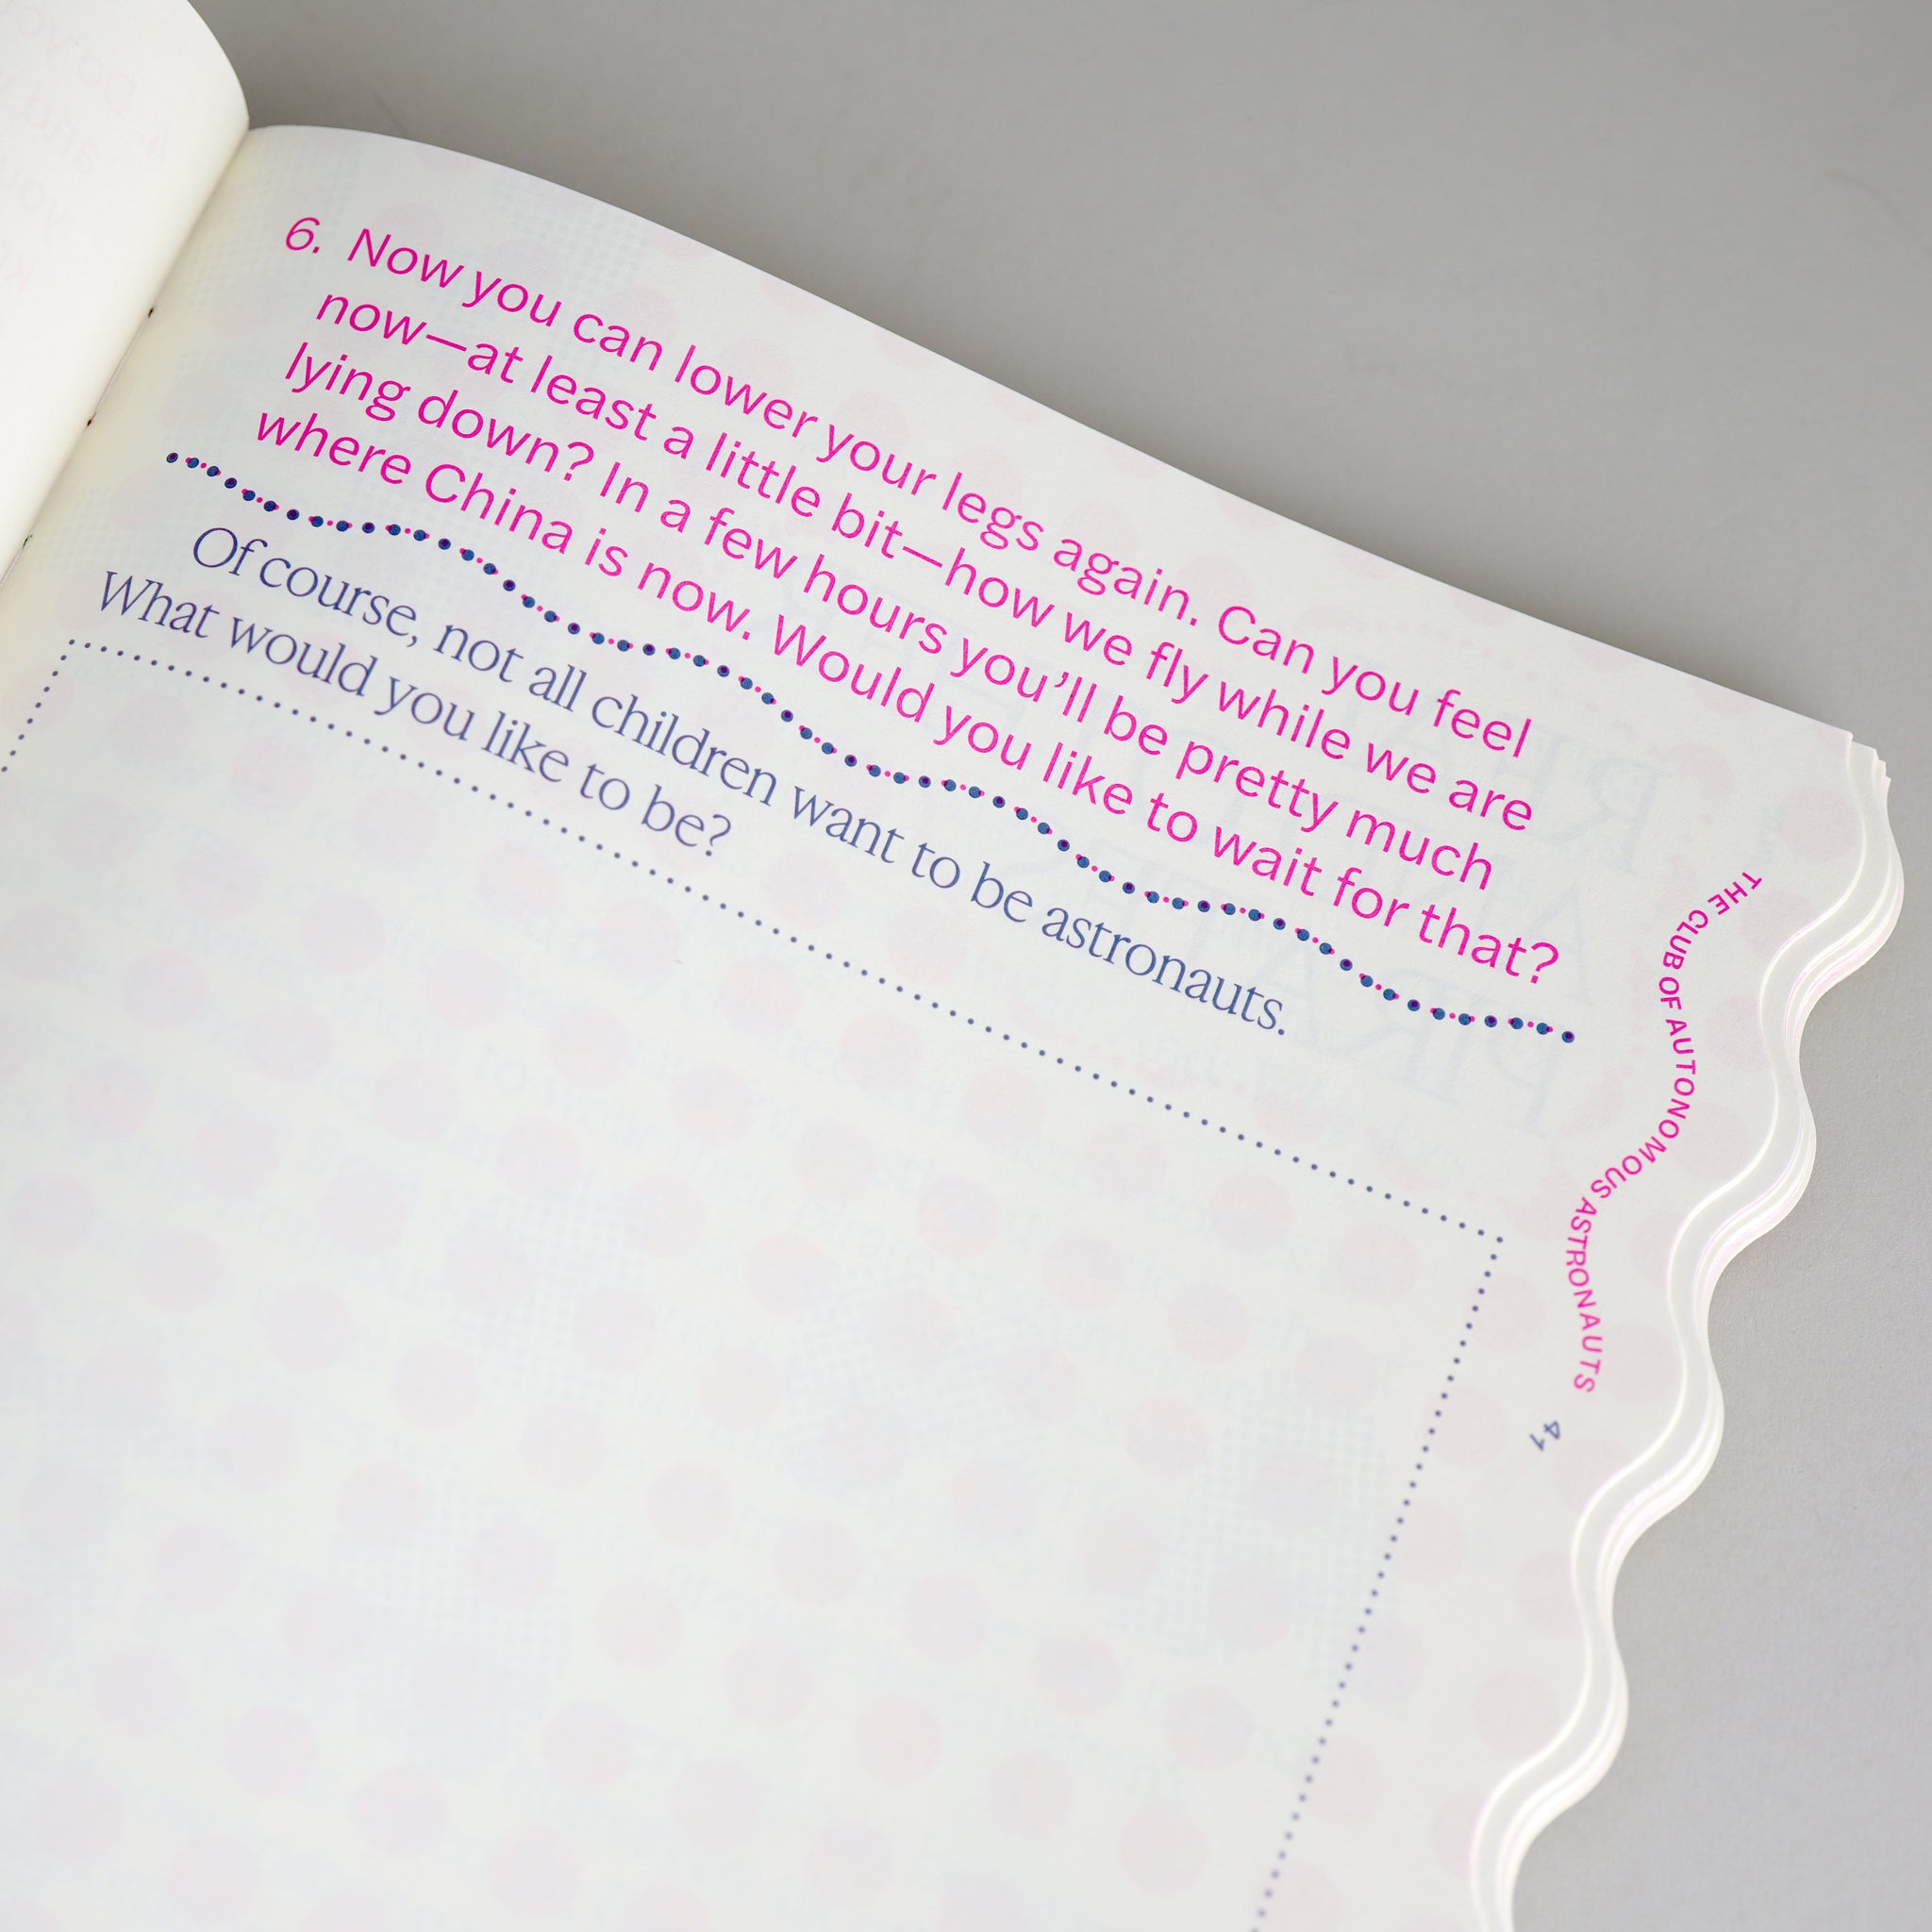 6. Now you can lower your legs again. Can you feel
now—at least a little bit—how we fly while we are
lying down? In a few hours you’ll be pretty much
where China is now. Would you like to wait for that?
Of course, not all children want to be astronauts.
What would you like to be?
THE CLUB OF AUTONOMOUS ASTRONAUTS
41